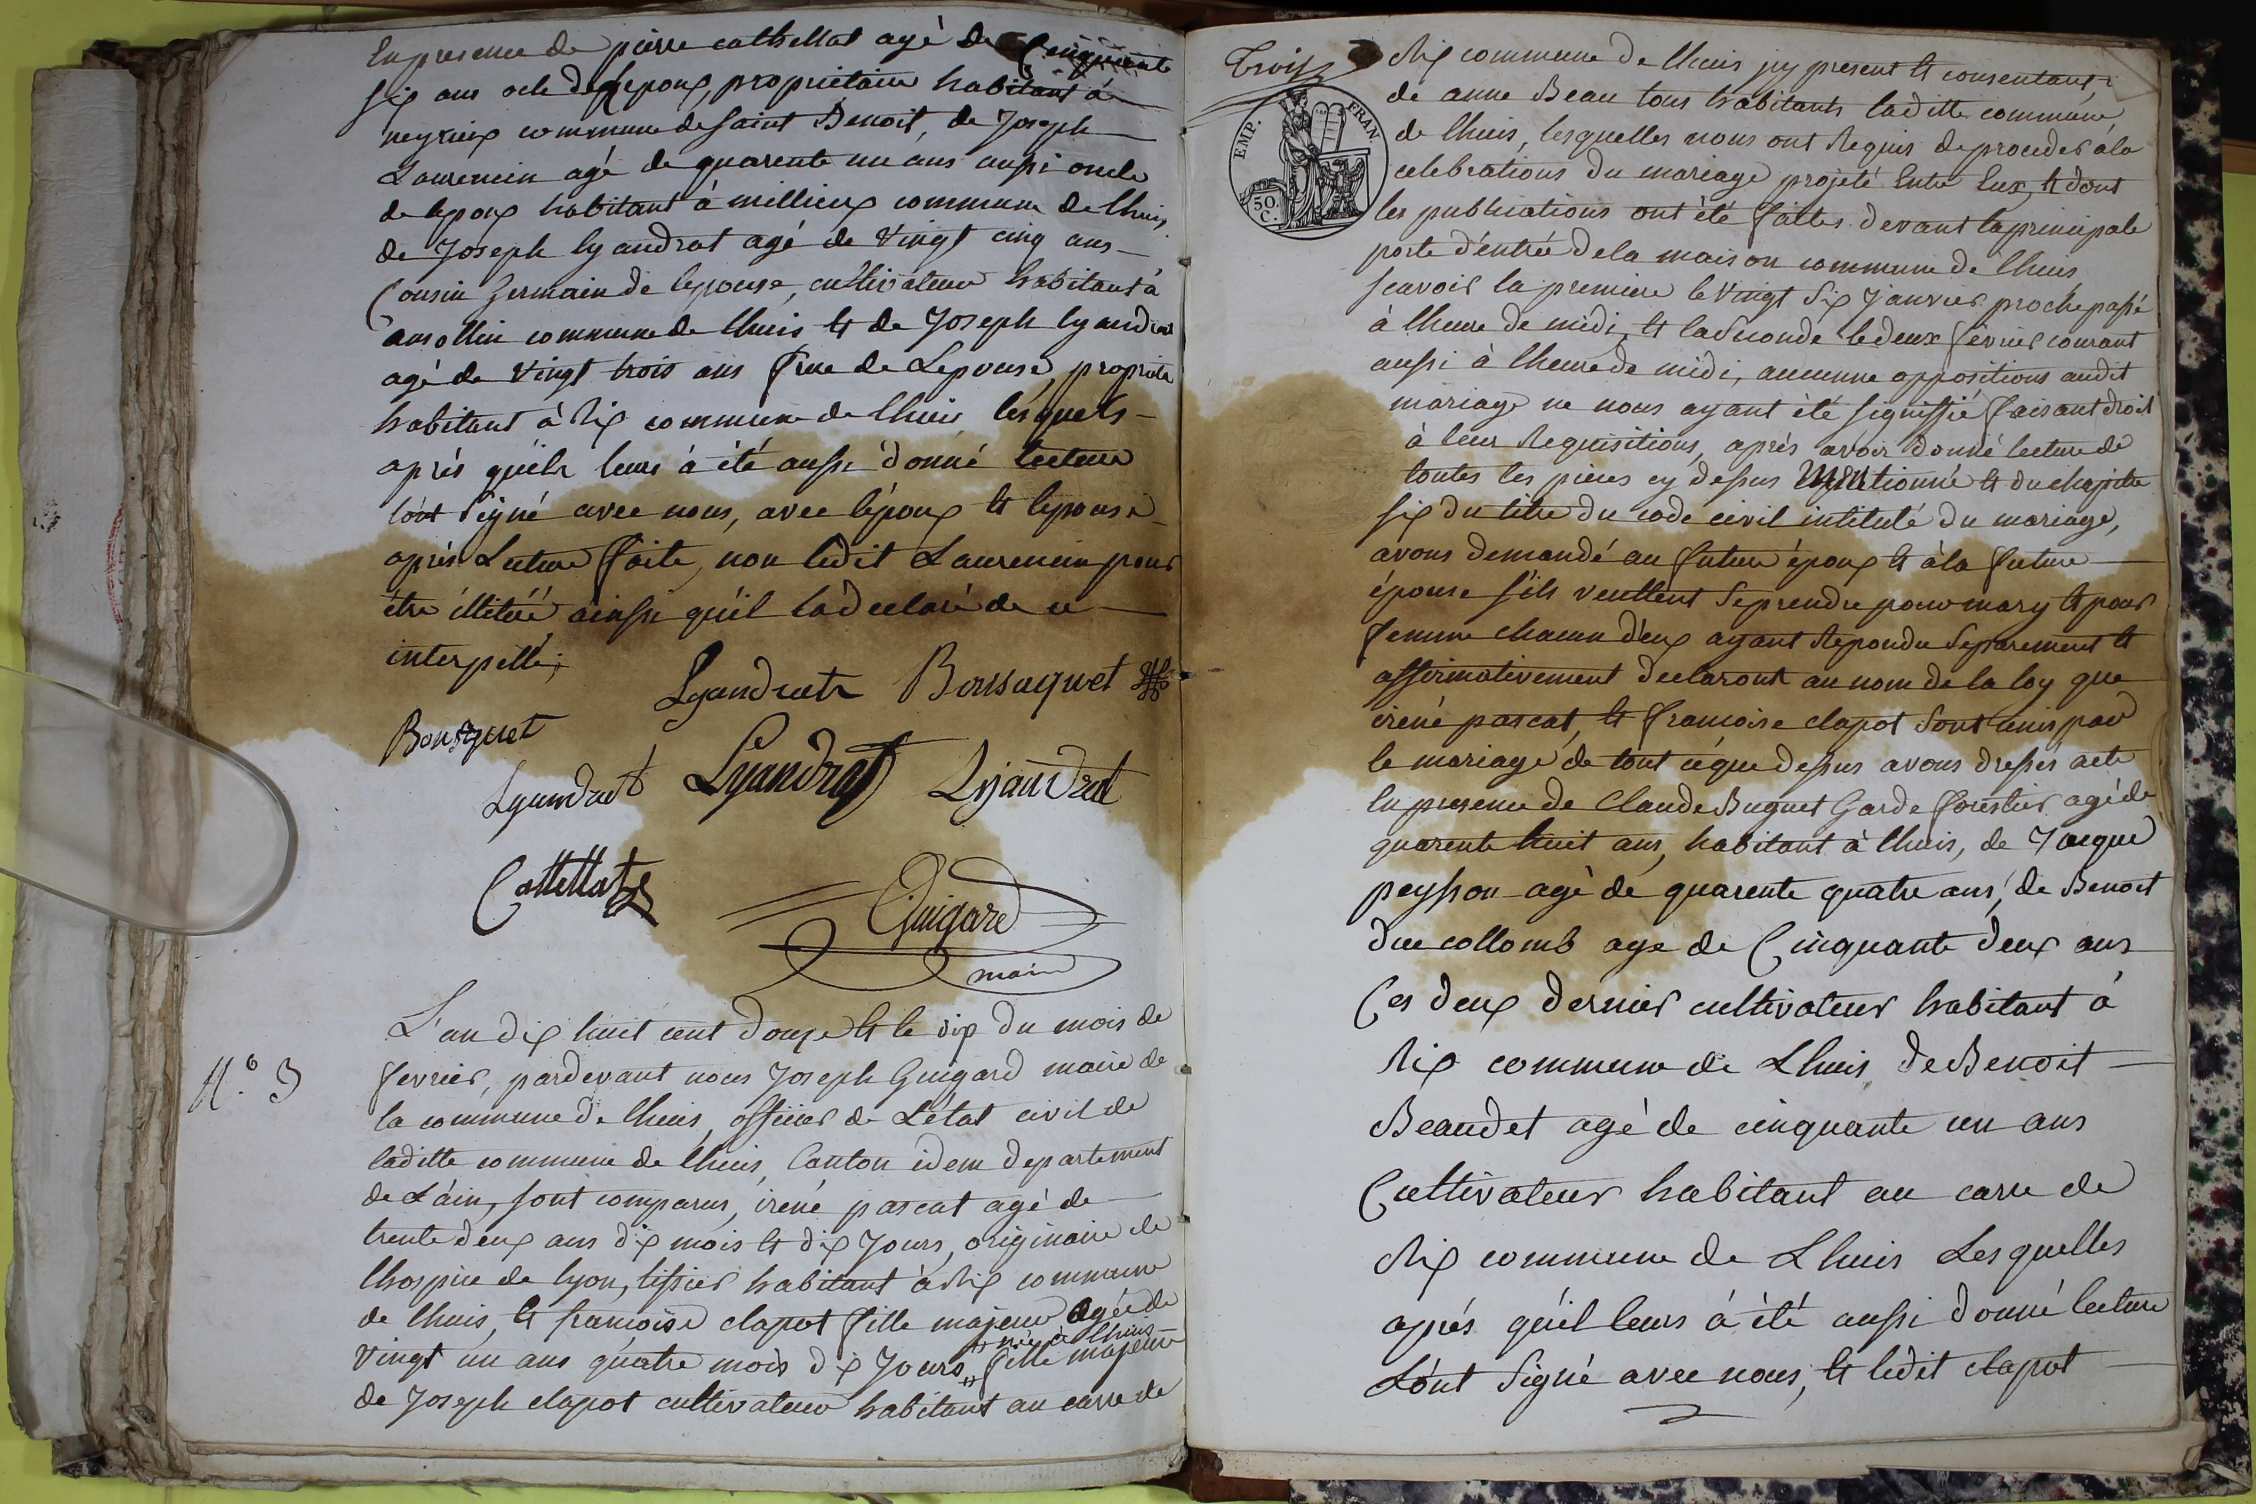 En presence de pierre cathellat agé de Cinquente
six ans ocle de lepoux, propriétaire habitant à
neyrieux commune de saint Benoit, de Joseph
Laurencin agé de quarente un ans aussi oncle
de lepoux habitant à millieux commune de lhuis,
de Joseph lyandrat agé de vingt cinq ans
Cousin Germain de lepouse, cultivateur habitant à
ansollin commune de lhuis et de Joseph lyandrat
agé de vingt trois ans frue de Lepouse, propriete
habitant à Rix commune de lhuis lesquels
après quéils leurs à été aussi donné lecture
lónt signé avec nous, avec lépoux et lepouse
après Lecture faite, non ledit Laurencin pour
être illiteré ainsi qu'il la déclaré de ce
interpellé;
Lyandrat Bonsaquet
Bonsquet
Lyandrat Lyandrat Lyandrat
Cathellat
Guigard
maire
N.° 3
L'an dix huit cent douze et le dix du mois de
fevrier, pardevant nous Joseph Guigard maire de
la commune de lhuis, officier de L'état civil de
laditte commune de lhuis, Canton idem departement
de L'áin, sont comparus, iréné pascat agé de
trente deux ans dix mois et dix Jours, originaire de
lhospice de lyon, tissier habitant à Rix commune
de lhuis, et françoise clapot fille majeure agée de
" née à lhuis
vingt un ans quatre mois dix Jours," fille majeure
de Joseph clapot cultivateur habitant au carre de
Trois
EMP. FRAN.
50. C.
Rix commune de lhuis jcy present et consentant,
de anne Beau tous habitants laditte commune
de lhuis, lesquelles nous ont Requis de proceder à la
celebrations du mariage projeté Entre Eux, et dont
les publications ont été faittes devant la principale
porte d'éntrée de la maison commune de lhuis
scavoir la premiere le vingt six Janvier proche passé
à lheure de midi, et la seconde le deux fevrier courant
aussi à lheure de midi, aucunne oppositions audit
mariage ne nous ayant été signiffié faisant droit
à leur Requisitions, après avoir donné lecture de
toutes les pieces cy dessus mentionné et du chapitre
six du titre du code civil intitulé du mariage,
avons demandé au futur époux et à la future
épouse s'ils veullent se prendre pour mary et pour
femme chacun d'eux ayant Repondu Separement et
affirmativement declaront au nom de la loy que
iréné pascat, et françoise clapot sont unis par
le mariage de tout céque dessus avons dressés acte
En presence de Claude Buguet Garde forestier agé de
quarente huit ans, habitant à lhuis, de Jacque
peysson agé de quarente quatre ans, de Benoit
ducollomb age de Cinquante deux ans
Ces deux dernier cultivateur habitant à
Rix commune de Lhuis de Benoit
Beaudet agé de cinquante un ans
Cultivateur habitant au carre de
Rix commune de Lhuis Lesquelles
après quéil leurs à été aussi donné lecture
Lónt signé avec nous, et ledit clapot